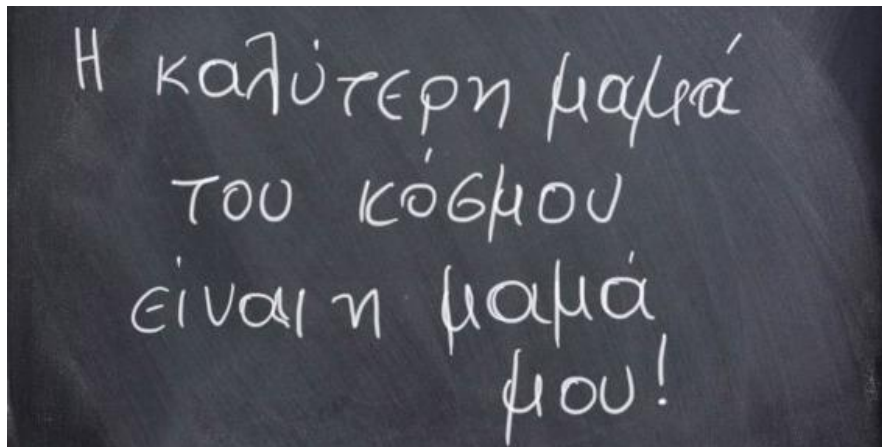 Η καλύτερη μαμά
του κόσμου
είναι η μαμά
μου!